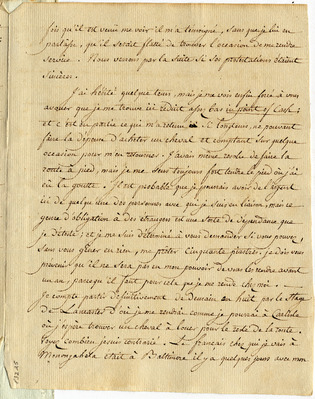 fois qu'il est venu me voir il m'a temoigné, sans que je lui en
parlasse, qu'il serait flatté de trouver l'occasion de me rendre
service. Nous verrons par la suite si ses protestations étaient
sincères.
J'ai hésité quelque tems, mais je me vois enfin forcé à vous
avouer que je me trouve ici réduit assez bas in point of Cash;
et c'est en partie ce qui m'a retenu ici si longtems, ne pouvant
faire la dépense d'acheter un cheval et comptant sur quelque
occasion pour m'en retourner. J'avais même resolu de faire la
route à pied, mais je me sens toujours fort tendre le pied où j'ai
eu la goutte. Il est probable que je pourrais avoir de l'argent
ici de quelqu'une des personnes avec qui je suis en liaison, mais ce
genre d'obligation à des étrangers est une sorte de dépendance que
je déteste; et je me suis déterminé à vous demander si vous pouvez,
sans vous gêner en rien, me prêter cinquante piastres. Je dois vous
prevenir qu'il ne sera pas en mon pouvoir de vous les rendre avant
un an, parcequ'il faut pour cela que je me rende chez moi.
Je compte partir définitivement de demain en huit par le Stage
de Lancaster d'où je me rendrai comme je pourrai à Carlisle
où j'espère trouver un cheval à louer pour le reste de la route.
Voyez combien je suis contrarié. Le français chez qui je vais à
Monongahela était à Baltimore il y a quelques jours avec mon